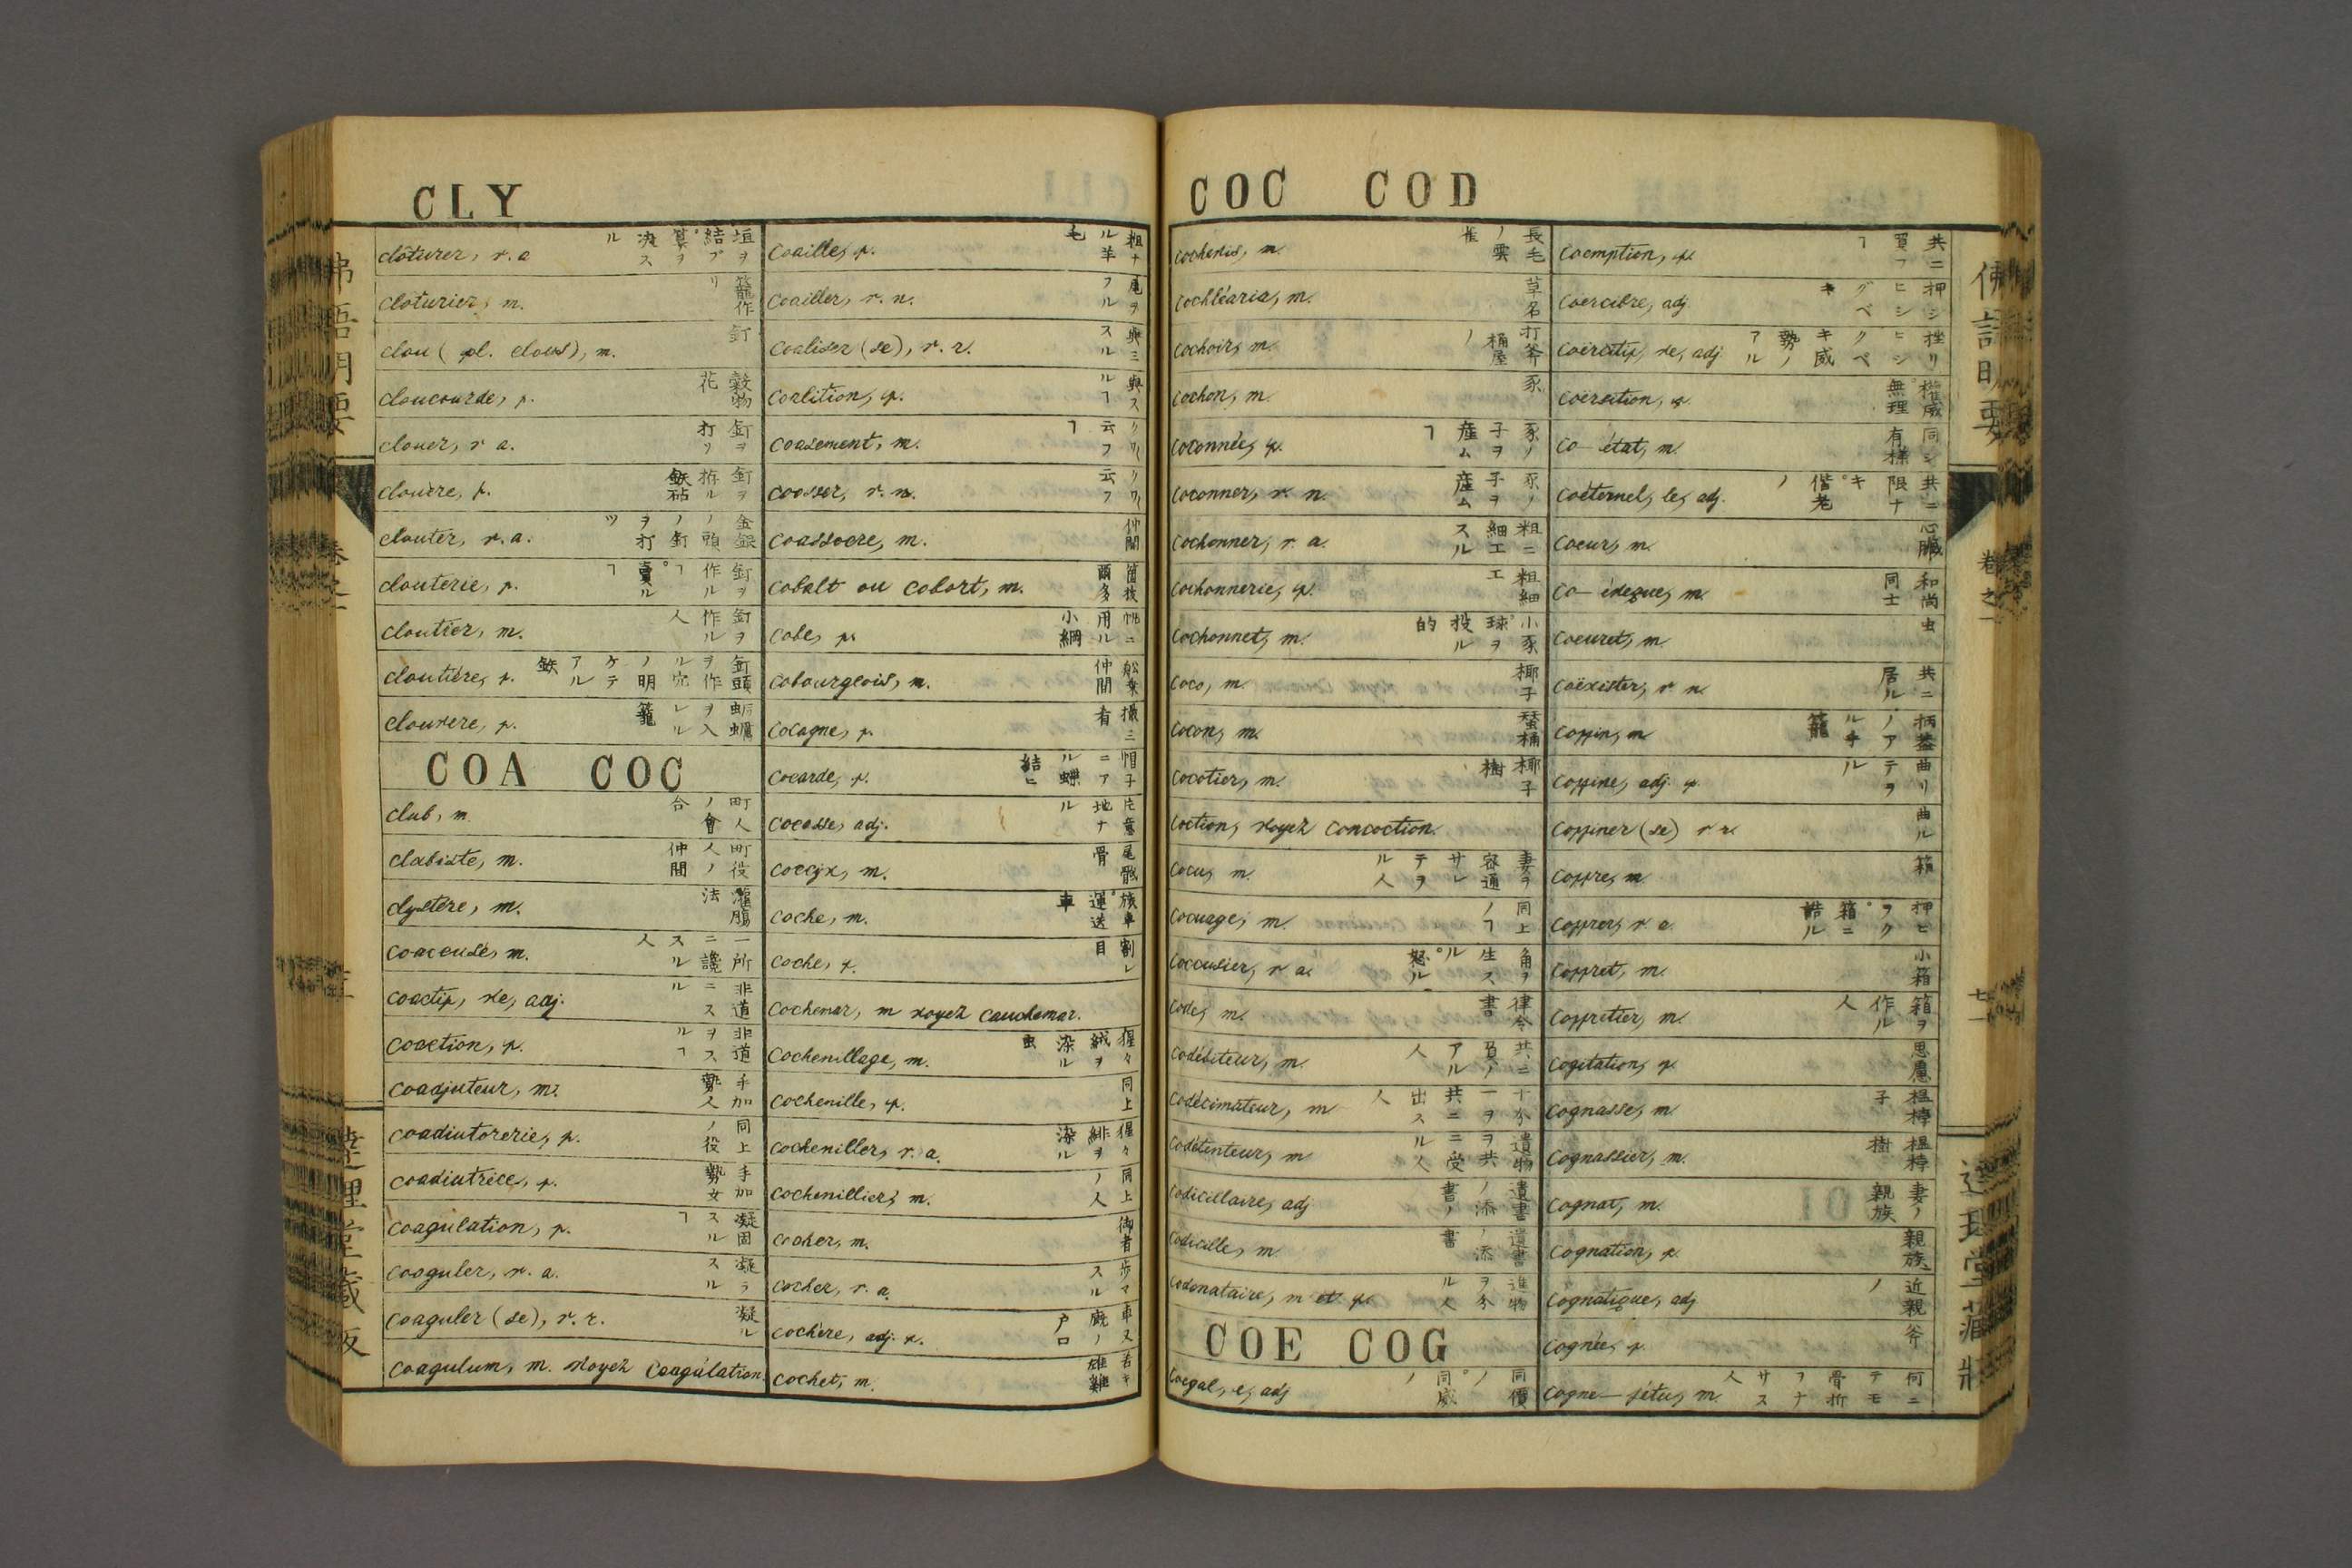 CLY
clôturer, v. a 垣ヲ結ブ。算ヲ決スル
cloturier, m. 籠作リ
clou ( pl. clous), m. 釘
cloucourde, f. 穀物花
clouer, v a. 釘ヲ打ツ
clouère, f. 釘ヲ拵ル鉄砧
clouter, v. a. 金銀ノ頭ノ釘ヲ打ツ
clouterie, f. 釘ヲ作ルヿ。賣ルヿ
cloutier, m. 釘ヲ作ル人
cloutière, f. 釘頭ヲ作ルノ穴明ケテアル鉄
clouvere, f. 蛎蠣ヲ入レル籠
COA COC
club, m 町人ノ會合
clubiste, m. 町役人ノ仲間
clystère, m. 灌膓法
coaccusé, m. 一所ニ讒スル人
coactif, ve, adj. 非道ニスル
coaction, f. 非道ヲスルヿ
coadjuteur, m. 手加勢人
coadiutorerie, f. 同上ノ役
coadiutrice, f. 手加勢女
coagulation, f. 凝固スルヿ
coaguler, v. a. 凝ラスル
coaguler (se), v. r. 凝ル
coagulum, m. voyez coagulation.
coaille, f. 粗ナル羊毛
coailler, v. n. 尾ヲフル
coaliser (se), v. r. 與ミスル
coalition, f. 與スルヿ
coasement, m. クワ〱云フヿ
coasser, v. n. クワ〱云フ
coassocre, m. 仲間
cobalt ou cobort, m. 箇抜爾多
cobe, f. 帆ニ用ル小綱
cobourgeois, m. 舩乗仲間
cocagne, f.
cocarde, f. 帽子ニアル蝶結ヒ
cocasse, adj. 片意地ナル
coccyx, m. 尾骶骨
coche, m. 旅車。運送車
coche, f. 割レ目
cochemar, m voyez cauchemar.
cochenillage, m. 猩々絨ヲ染ル虫
cochenille, f. 同上
cocheniller, v. a. 猩々緋ヲ染ル
cochenillier, m. 同上ノ人
cocher, m. 御者
cocher, v. a. 歩マスル
cochère, adj. f. 車又廐ノ戸口
cochet, m. 若キ雄雞
COC COD
cochevis, m. 長毛ノ雲雀
cochléaria, m. 草名
cochoir, m. 打斧桶屋ノ
cochon, m. 豕
coconnée, f. 豕ノ子ヲ産ムヿ
coconner, v. n. 豕ノ子ヲ産ム
cochonner, v. a. 粗ニ細工スル
cochonnerie, f. 粗細工
cochonnet, m. 小豕。球ヲ投ル的
coco, m. 椰子
cocon, m. 蝅桶
cocotier, m. 椰子樹
coction, voyez concoction.
cocu, m. 妻ヲ密通サレテヲル人
cocuage, m. 同上ノヿ
coccusier, v a. 角ヲ生スル。怒ル
code, m. 律令書
codébiteur, m. 共ニ負ノアル人
codécimateur, m 十分一ヲ共ニ出ス人
codétenteur, m 遺物ヲ共ニ受ル人
codicillaire, adj 遺書ノ添書ノ
codicille, m. 遺書ノ添書
codonataire, m et f. 進物ヲ分ル人
COE COG
coegal, e, adj 同價ノ。同威ノ
coemption, f. 共ニ買フヿ
coercibre, adj. 押シヒシグベキ
coërcitif, ve, adj 挫リヒシクベキ威勢ノアル
coërsition, f. 權威。無理
co-état, m. 同シ有樣
coéternel, le, adj. 共ニ限ナキ。偕老ノ
coeur, m. 心臓
co-évêque, m. 和尚同士
coeuret, m. 虫
coëxister, v n. 共ニ居ル
coffin, m 柄蓋ノアル手籠
coffine, adj. f. 曲リテヲル
coffiner (se) v r. 曲ル
coffre, m. 箱
coffrer, v. a. 箱ニ詰ル
coffret, m. 小箱
coffretier, m. 箱ヲ作ル人
cogitation, f. 思慮
cognasse, m 榲桲子
cognassier, m. 榲桲樹
cognat, m. 妻ノ親族
cognation, f. 親族
cognatique, adj 近親ノ
cognée, f. 斧
cogne-fétu, m. 何ニテモ骨折ヲナサス人
佛語明要
巻之一
七一
達理堂藏版